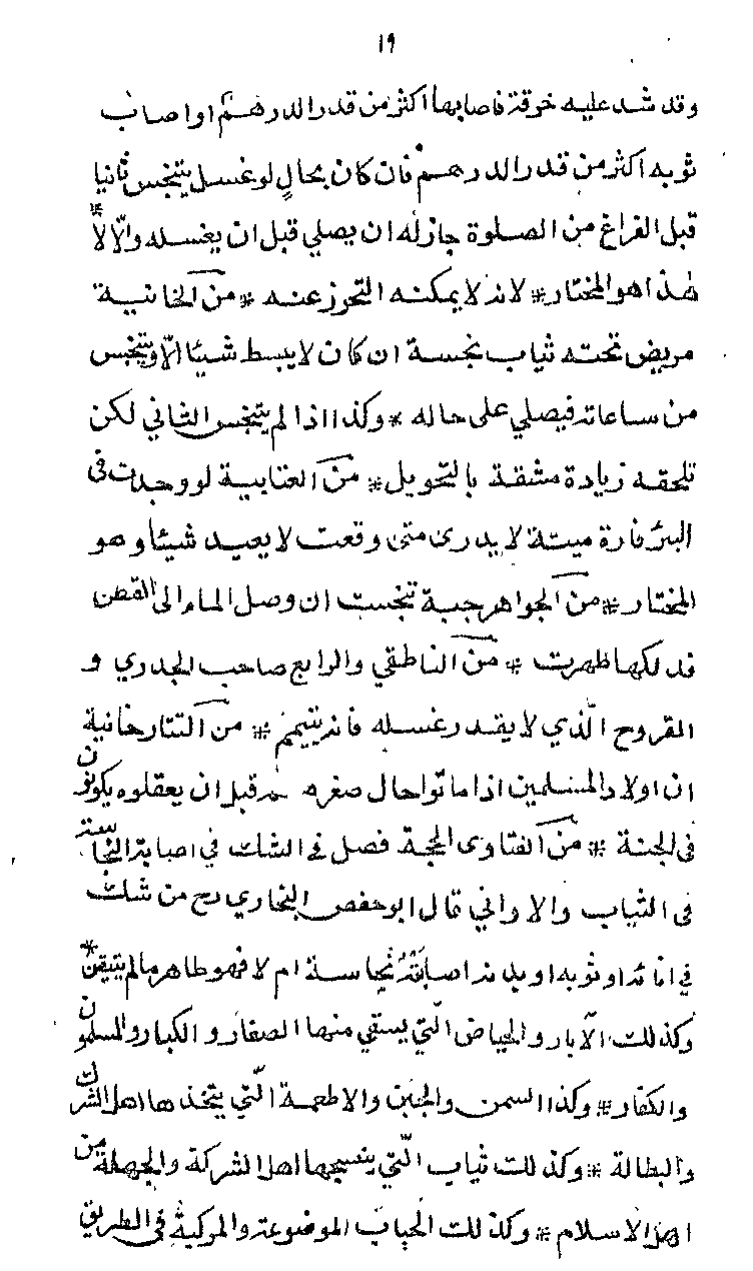 ١٩
وقد شد عليه خرقة فاصابها اكثر من قدر الدرهم او اصاب
ثوبه اكثر من قدر الدرهم فان كان بحال لو غسل يتنجس ثانيا
قبل الفراغ من الصلوة جاز له ان يصلي قبل ان يغسله والّا لا *
هذا هو المختار * لانه لا يمكنه التحرز عنه * من الخانية
مريض تحته ثياب نجسة ان كان لا يبسط شيئا الّا ويتنجس
من ساعاته فيصلي على حاله * وكذا اذا لم يتنجس الثاني لكن
تلحقه زيادة مشقة بالتحويل * من العتابية لو وجدت فى
البئر فارة ميتة لا يدرى متى وقعت لا يعيد شيئا وهو
المختار * من الجواهر جبة تنجست ان وصل الماء الى القطن
قد لكها ظهرت * من الناطقي والرابع صاحب الجدري و
المقروح الّذي لا يقدر غسله فانه يتيمم * من التتارخانية
ان اولاد المسلمين اذا ماتوا حال صغرهم قبل ان يعقلوه يكونون
فى الجنة * من الفتاوى الحجة فصل فى الشك في اصابة النجاسة
فى الثياب والاواني قال ابو حفص البخاري رح من شك
في انائه او ثوبه او بدنه اصابتْهُ نجاسة ام لا فهو طاهر ما لم يتيقن *
وكذلك الآبار والحياض الّتي يستقي منها الصغار والكبار والمسلمون
والكفار * وكذا السمن والجبن والاطعمة الّتي يتخذها اهل الشرك
والبطالة * وكذلك ثياب الّتي ينسجها اهل الشركة والجهلة من
اهل الاسلام * وكذلك الحباب الموضوعة والمركبة فى الطريق